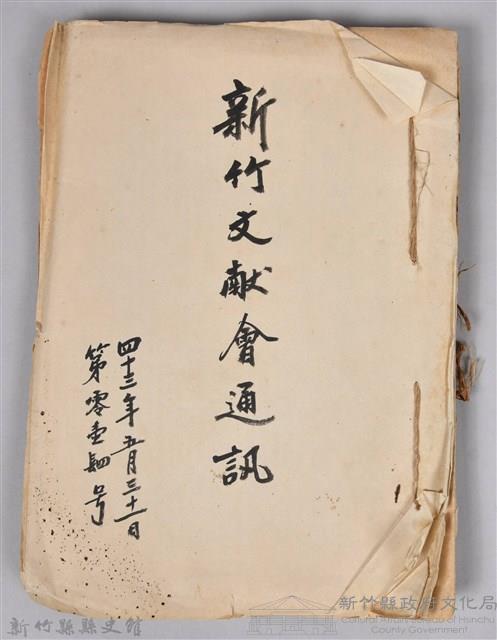 新竹文献會通訊
四十三年五月三十一日
第零壹肆号
新竹縣縣史館
新竹縣政府文化局
Cultural Affairs Bureau of Hsinchu
County Government